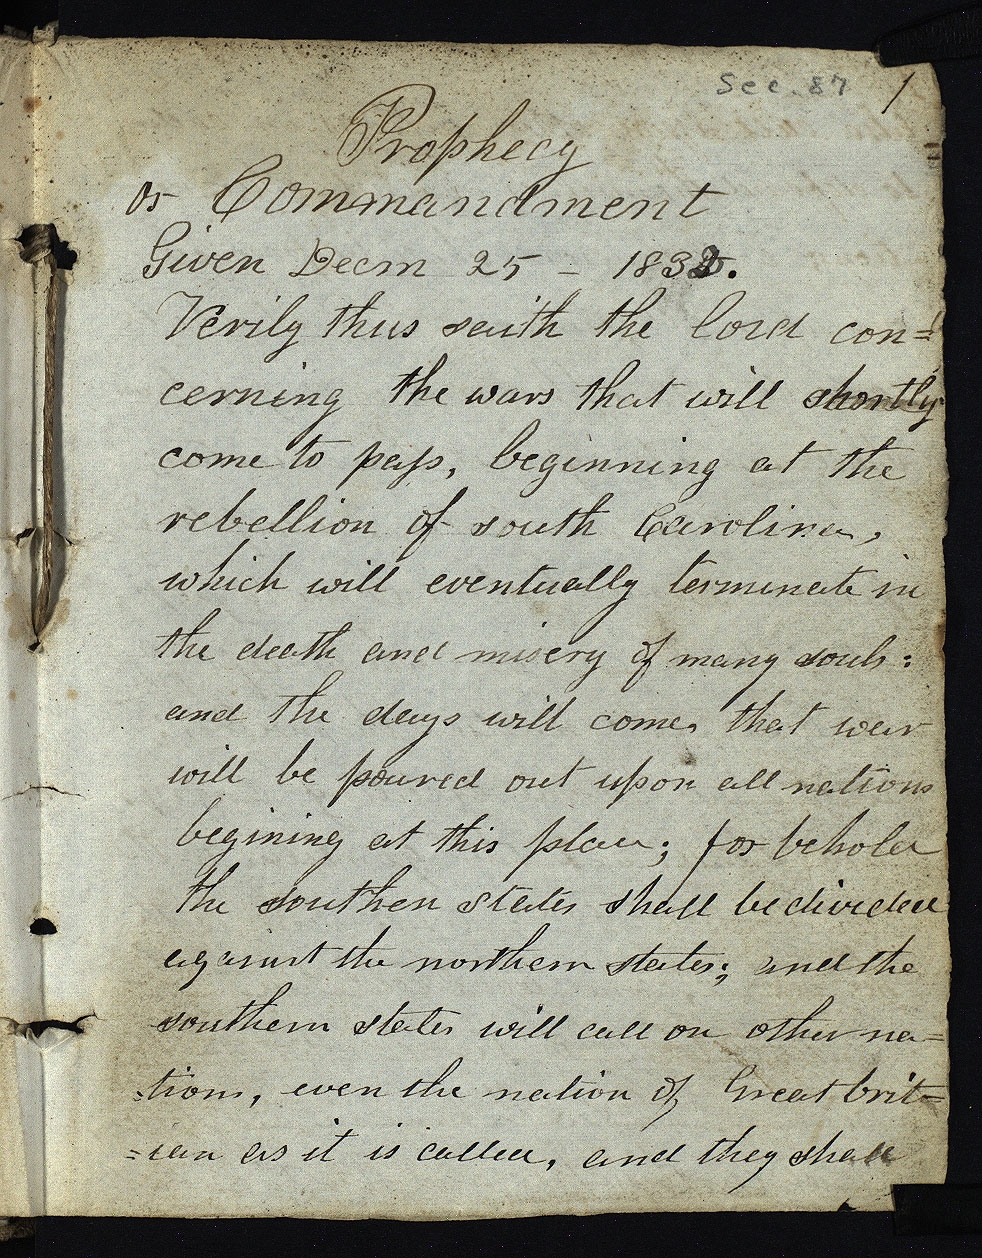 Sec. 87 1
Prophecy
or Commandment
Given Decm 25 - 1832.
Verily thus saith the lord con=
cerning the wars that will shortly
come to pass, beginning at the
rebellion of south Carolina,
which will eventually terminate in
the death and misery of many souls:
and the days will come, that war
will be poured out upon all nations
begining at this place; for behold
the southen states shall be divided
against the northern states; and the
southern states will call on other na=
=tions, even the nation of Great brit=
=ian as it is called, and they shall